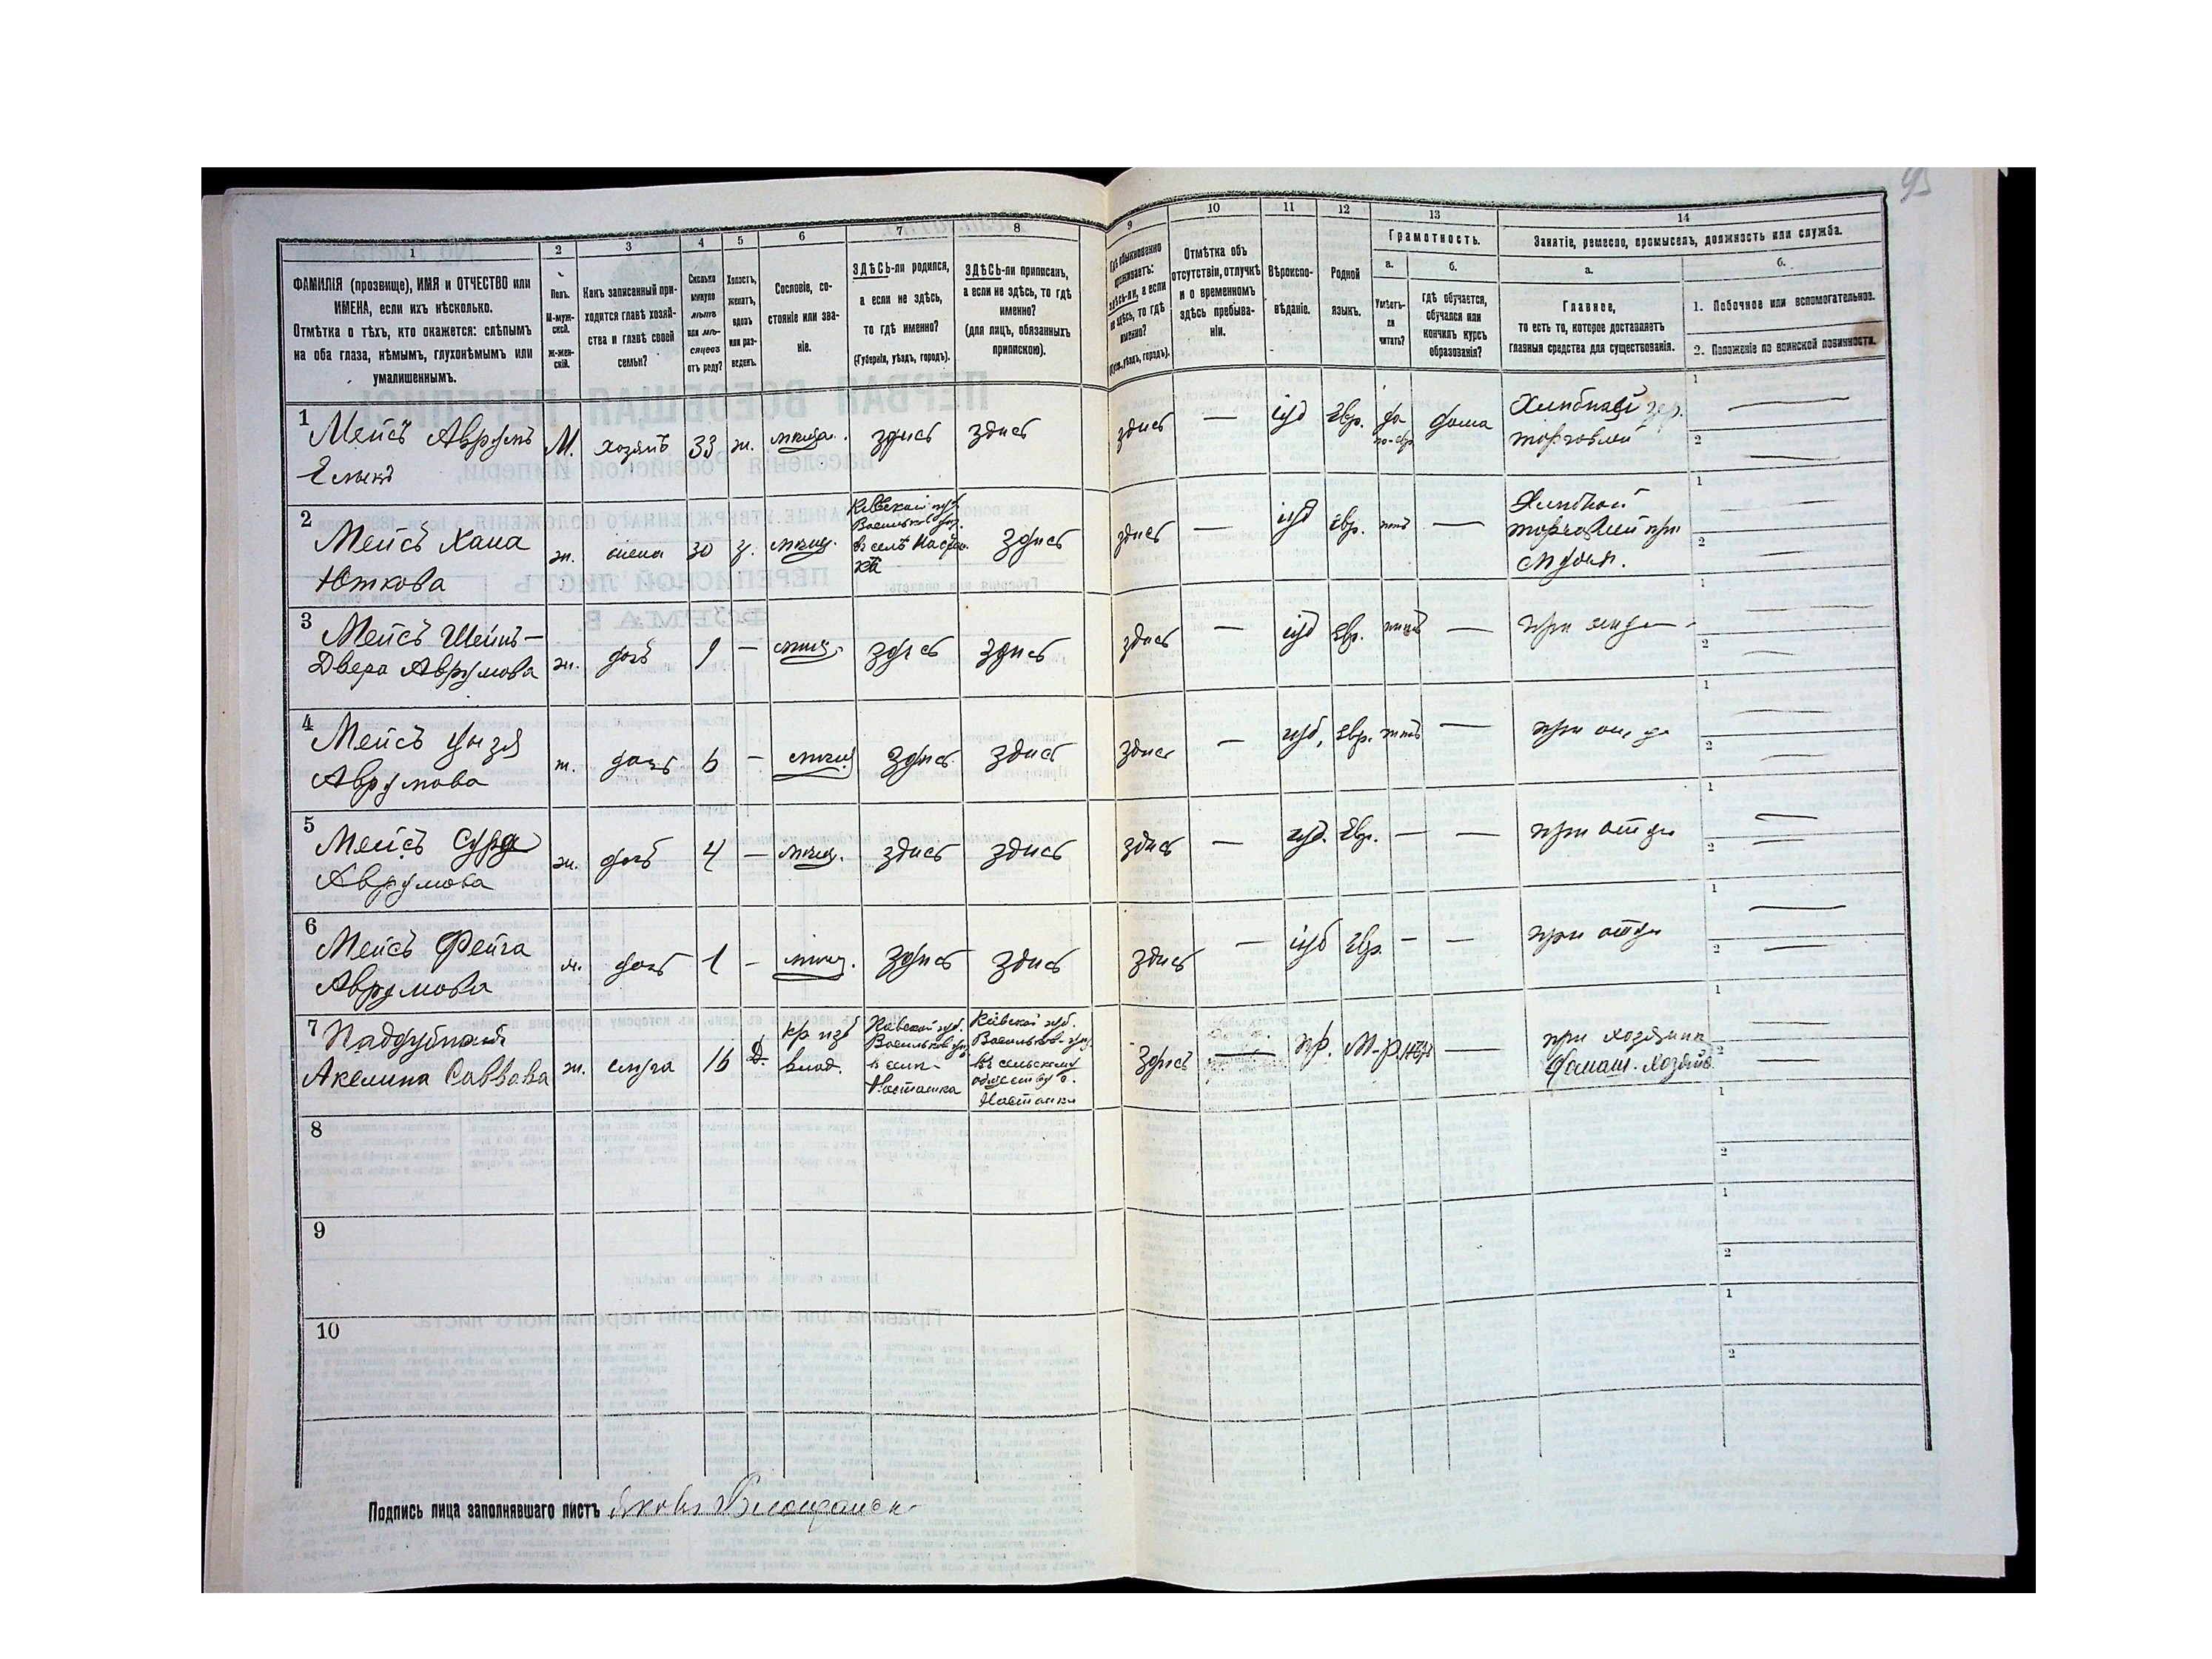 95
1 2 3 4 5 6 7 8 9 10 11 12 13 14
ФАМИЛІЯ (прозвище), ИМЯ и ОТЧЕСТВО или
ИМЕНА, если ихъ нѣсколько.
Отмѣтка о тѣхъ, кто окажется: слѣпымъ
на оба глаза, нѣмымъ, глухонѣмымъ или
умалишеннымъ.
Полъ.
М-муж-
ской.
ж-жен-
скій.
Какъ записанный при-
ходится главѣ хозяй-
ства и главѣ своей
семьи?
Сколько
минуло
лѣтъ
или мѣ-
сяцевъ
отъ роду?
Холостъ,
женатъ,
вдовъ
или раз-
веденъ.
Сословіе, со-
стояніе или зва-
ніе.
ЗДѢСЬ-ли родился,
а если не здѣсь,
то гдѣ именно?
(Губернія, уѣздъ, городъ).
ЗДѢСЬ-ли приписанъ,
а если не здѣсь, то гдѣ
именно?
(для лицъ, обязанныхъ
припискою).
Гдѣ обыкновенно
проживаетъ:
здѣсь-ли, а если
не здѣсь, то гдѣ
именно?
(Губ., уѣздъ, городъ).
Отмѣтка объ
отсутствіи, отлучкѣ
и о временномъ
здѣсь пребыва-
ніи.
Вѣроиспо-
вѣданіе.
Родной
языкъ.
Грамотность.
а.
Умѣетъ-
ли
читать?
б.
гдѣ обучается,
обучался или
кончилъ курсъ
образованія?
Занятіе, ремесло, промыселъ, должность или служба.
а.
Главное,
то есть то, которое доставляетъ
главныя средства для существованія.
б.
1. Побочное или вспомогательное.
2. Положеніе по воинской повинности.
1 Мейсъ Аврумъ М. хозяинъ 33 ж. здѣсь здѣсь здѣсь — іуд Евр. да дома
по-евр. торговлей
1 —
2 —
2 Мейсъ Хана ж. жена 30 з. мѣщ. Кіевской губ. здѣсь здѣсь — іуд Евр. нѣтъ — Хлѣбной
Юткова въ селѣ торговлей при
1 —
2 —
3 Мейсъ Шейнъ-
Двера Аврумова ж. дочь 9 — мѣщ. здѣсь здѣсь здѣсь — іуд Евр. нѣтъ — при отцѣ
1 — —
2 —
4 Мейсъ
Аврумова ж. дочь 6 — мѣщ здѣсь здѣсь здѣсь — іуд. Евр. нѣтъ — при отцѣ
1 —
2 —
5 Мейсъ
Аврумова ж. дочь 4 — мѣщ. здѣсь здѣсь здѣсь — іуд. Евр. — — при отцѣ
1 —
2 —
6 Мейсъ Фейга
Аврумова ж. дочь 1 — мѣщ. здѣсь здѣсь здѣсь — іуд Евр. — — при отцѣ
1 —
2 —
7
Акелина Саввова ж. слуга 16 Д. кр. изъ
влад. Кіевской губ.
въ селѣ
Насташка Кіевской губ.
въ сельскому
обществу с.
Насташки здѣсь — пр. М-р. — при хозяинѣ
домаш. хозяйс
1 —
2 —
8
1
2
9
1
2
10
1
2
Подпись лица заполнявшаго листъ